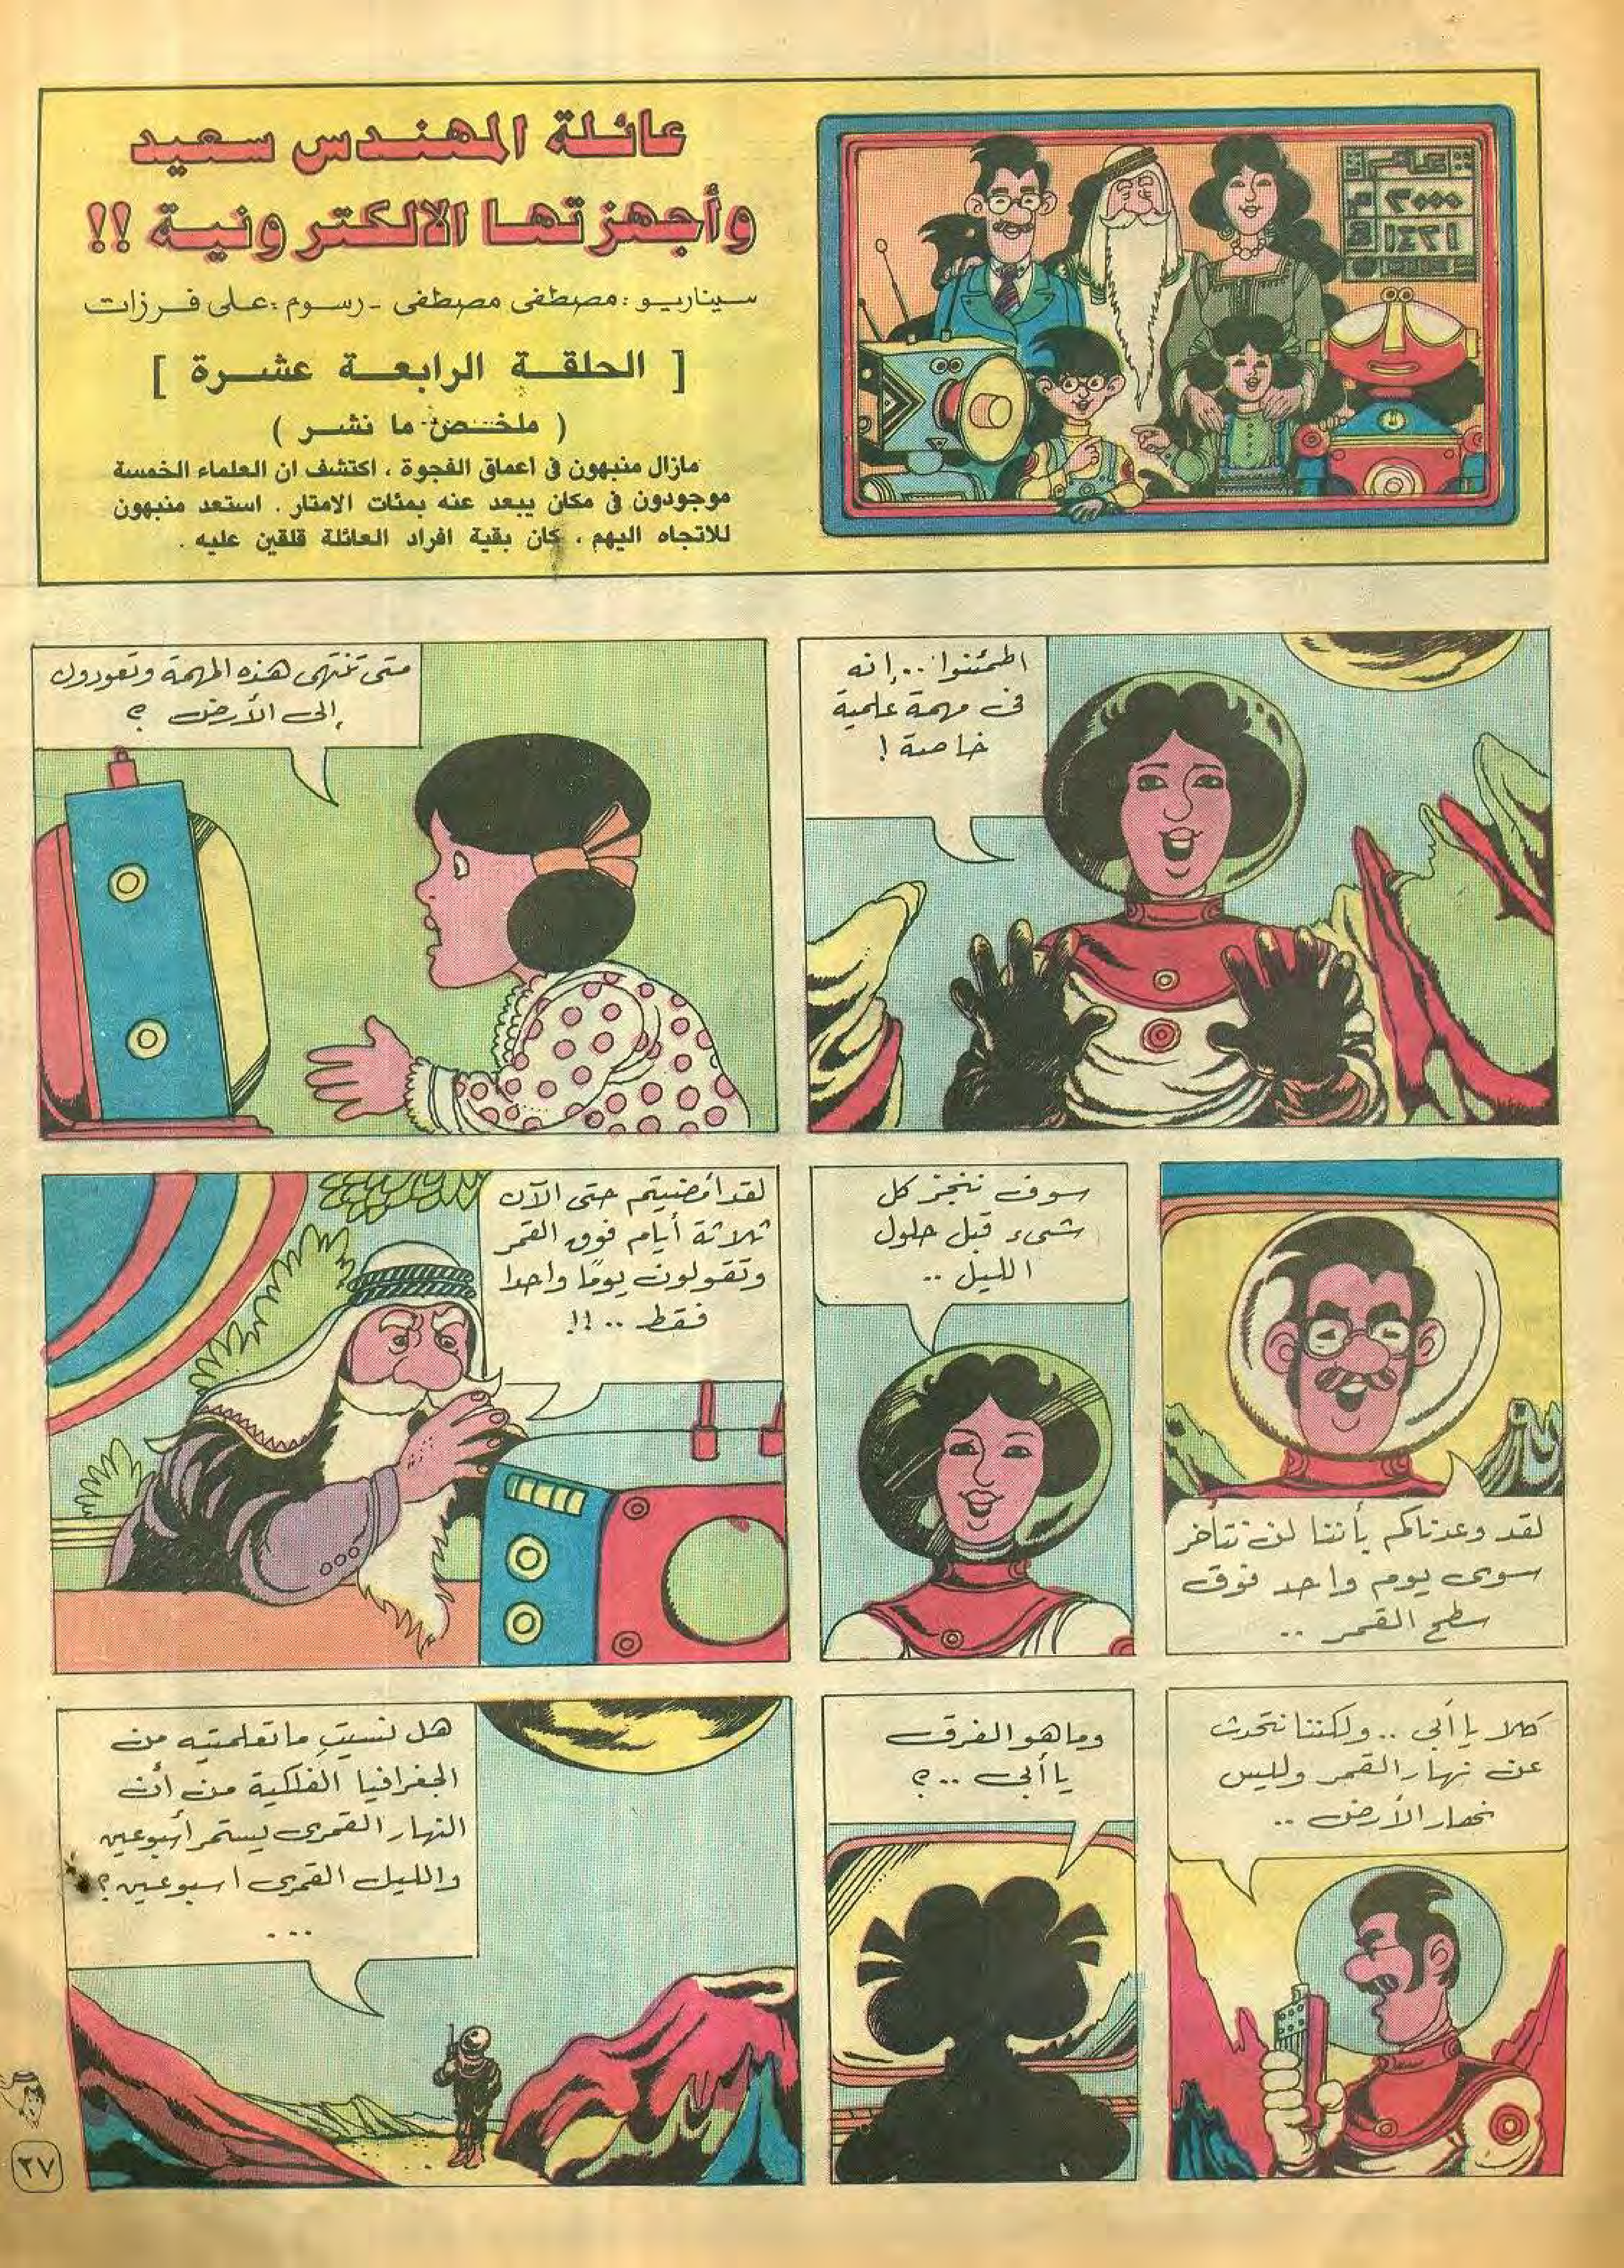 عائلة المهندس سعيد
وأجهزتها الالكترونية !!
سيناريو : مصطفى مصطفى - رسوم : على فرزات
[ الحلقة الرابعة عشرة ]
( ملخص ما نشر )
مازال منبهون فى اعماق الفجوة ، اكتشف ان العلماء الخمسة
موجودون فى مكان يبعد عنه بمئات الامتار . استعد منبهون
للاتجاه اليهم ، كان بقية افراد العائلة قلقين عليه .
٢٠٠٠ م
١٤٢١
اطمئنوا .. إنه
فى مهمة علمية
خاصة !
متى تنتهى هذه المهمة وتعودون
إلى الأرض ؟
لقد وعدناكم بأننا لن نتأخر
سوى يوم واحد فوق
سطح القمر ..
سوف ننجز كل
شىء قبل حلول
الليل ..
لقد أمضيتم حتى الآن
ثلاثة أيام فوق القمر
وتقولون يومًا واحدا
فقط .. !!
كلا يا أبى .. ولكننا نتحدث
عن نهار القمر وليس
نهار الأرض ..
وما هو الفرق
يا أبى .. ؟
هل نسيتِ ما تعلمتيه من
الجغرافيا الفلكية من أن
النهار القمرى يستمر أسبوعين
والليل القمرى اسبوعين ؟
...
٢٧